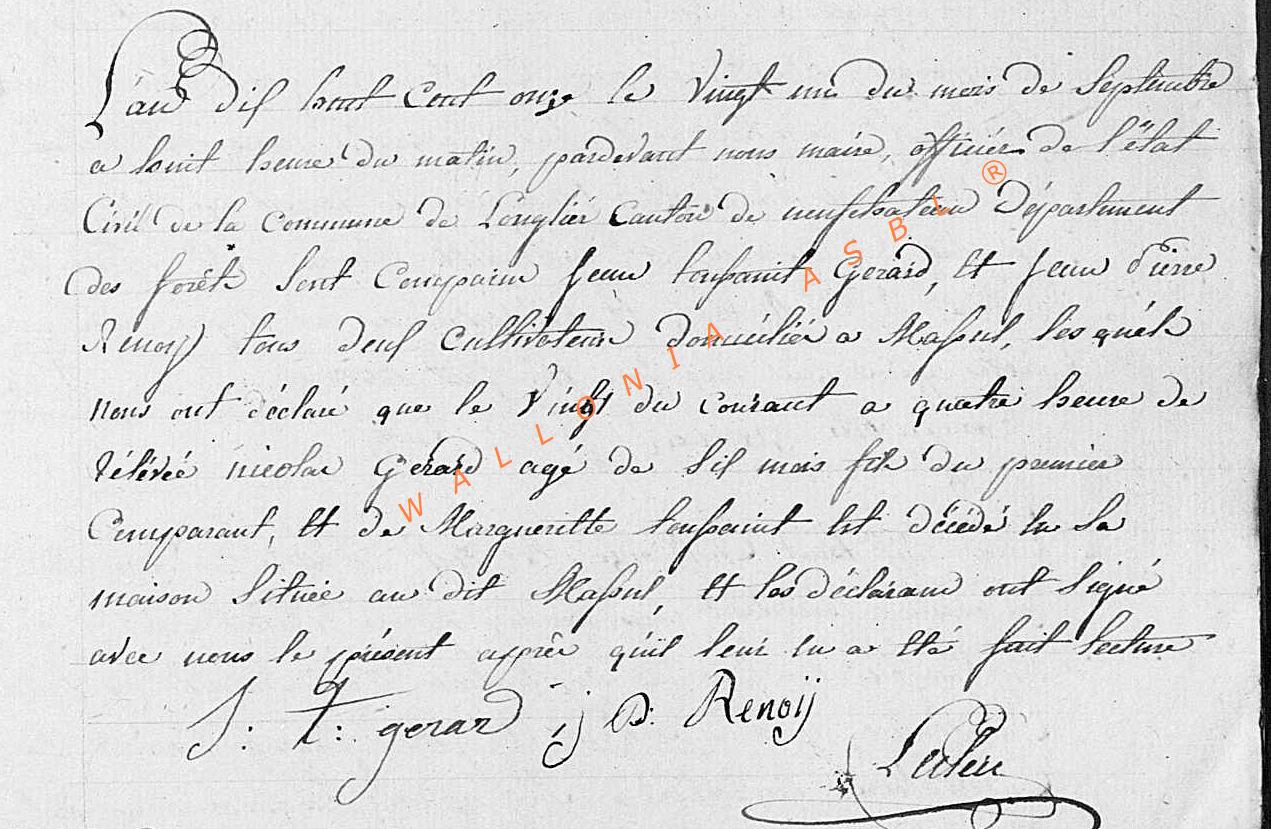 L'an dix huit Cent onze le Vingt un du mois de Septembre
a huit heure du matin, pardevant nous maire, officier de l'état
Civil de la Commune de Longlier Canton de neufchateau Département
des forêts sont Comparus Jean toussaint Gerard, et Jean Pierre
Renoÿ tous deux Cultivateurs domiciliés a Massul, les quéls
nous ont déclaré que le Vingt du Courant a quatre heure de
rélévée nicolas Gerard agé de six mois fils du premier
Comparant, et de Margueritte toussaint est décédé en sa
maison située au dit Massul, et les déclarans ont signé
avec nous le présent apprès qúil leur en a été fait lecture
J: t: gerar j P: Renoij
WALLONIA ASBL ®